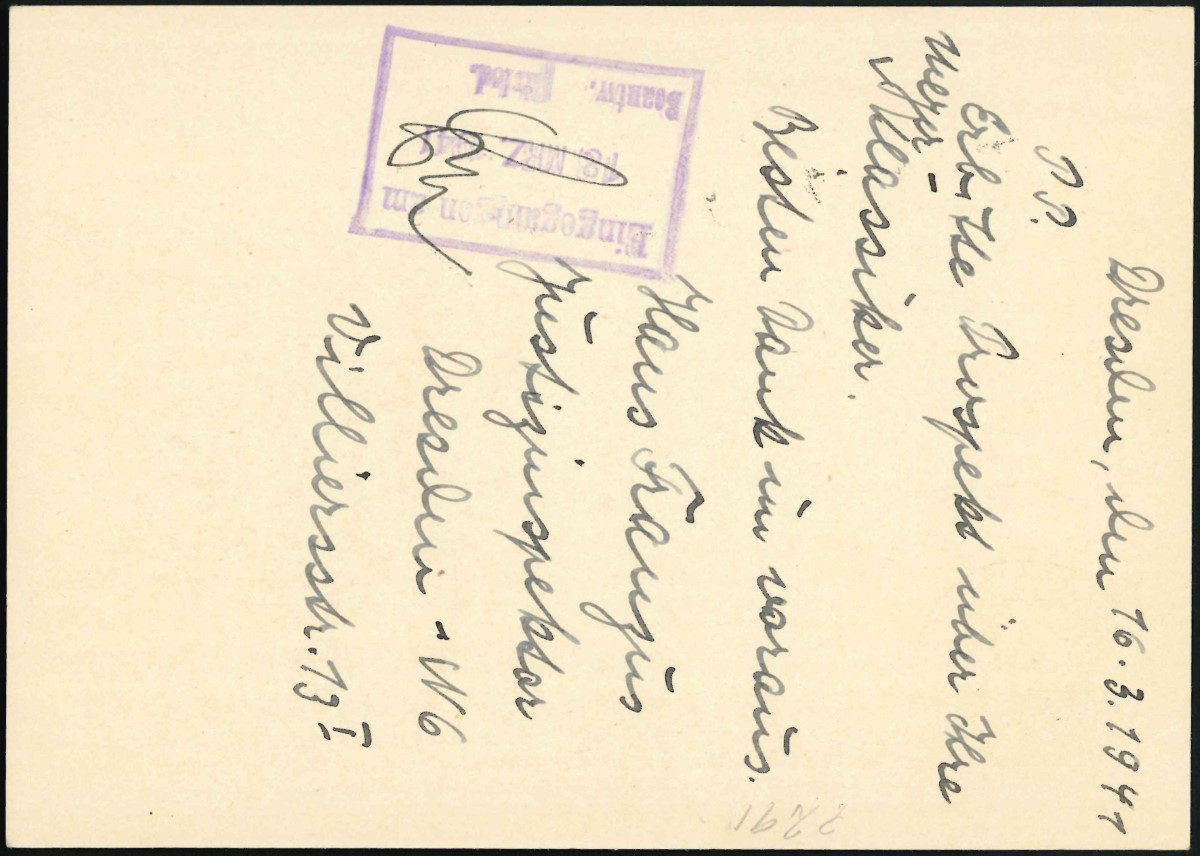 Dresden, den 16.3.1941
P. P.
Erbitte Prospekt über Ihre
Meyer-
Klassiker.
Besten Dank im voraus.
Hans
Justizinspektor
Dresden-N6
Villiersstr. 13 I
Eingegangen am
18 MRZ. 1941
Beantw.
2291